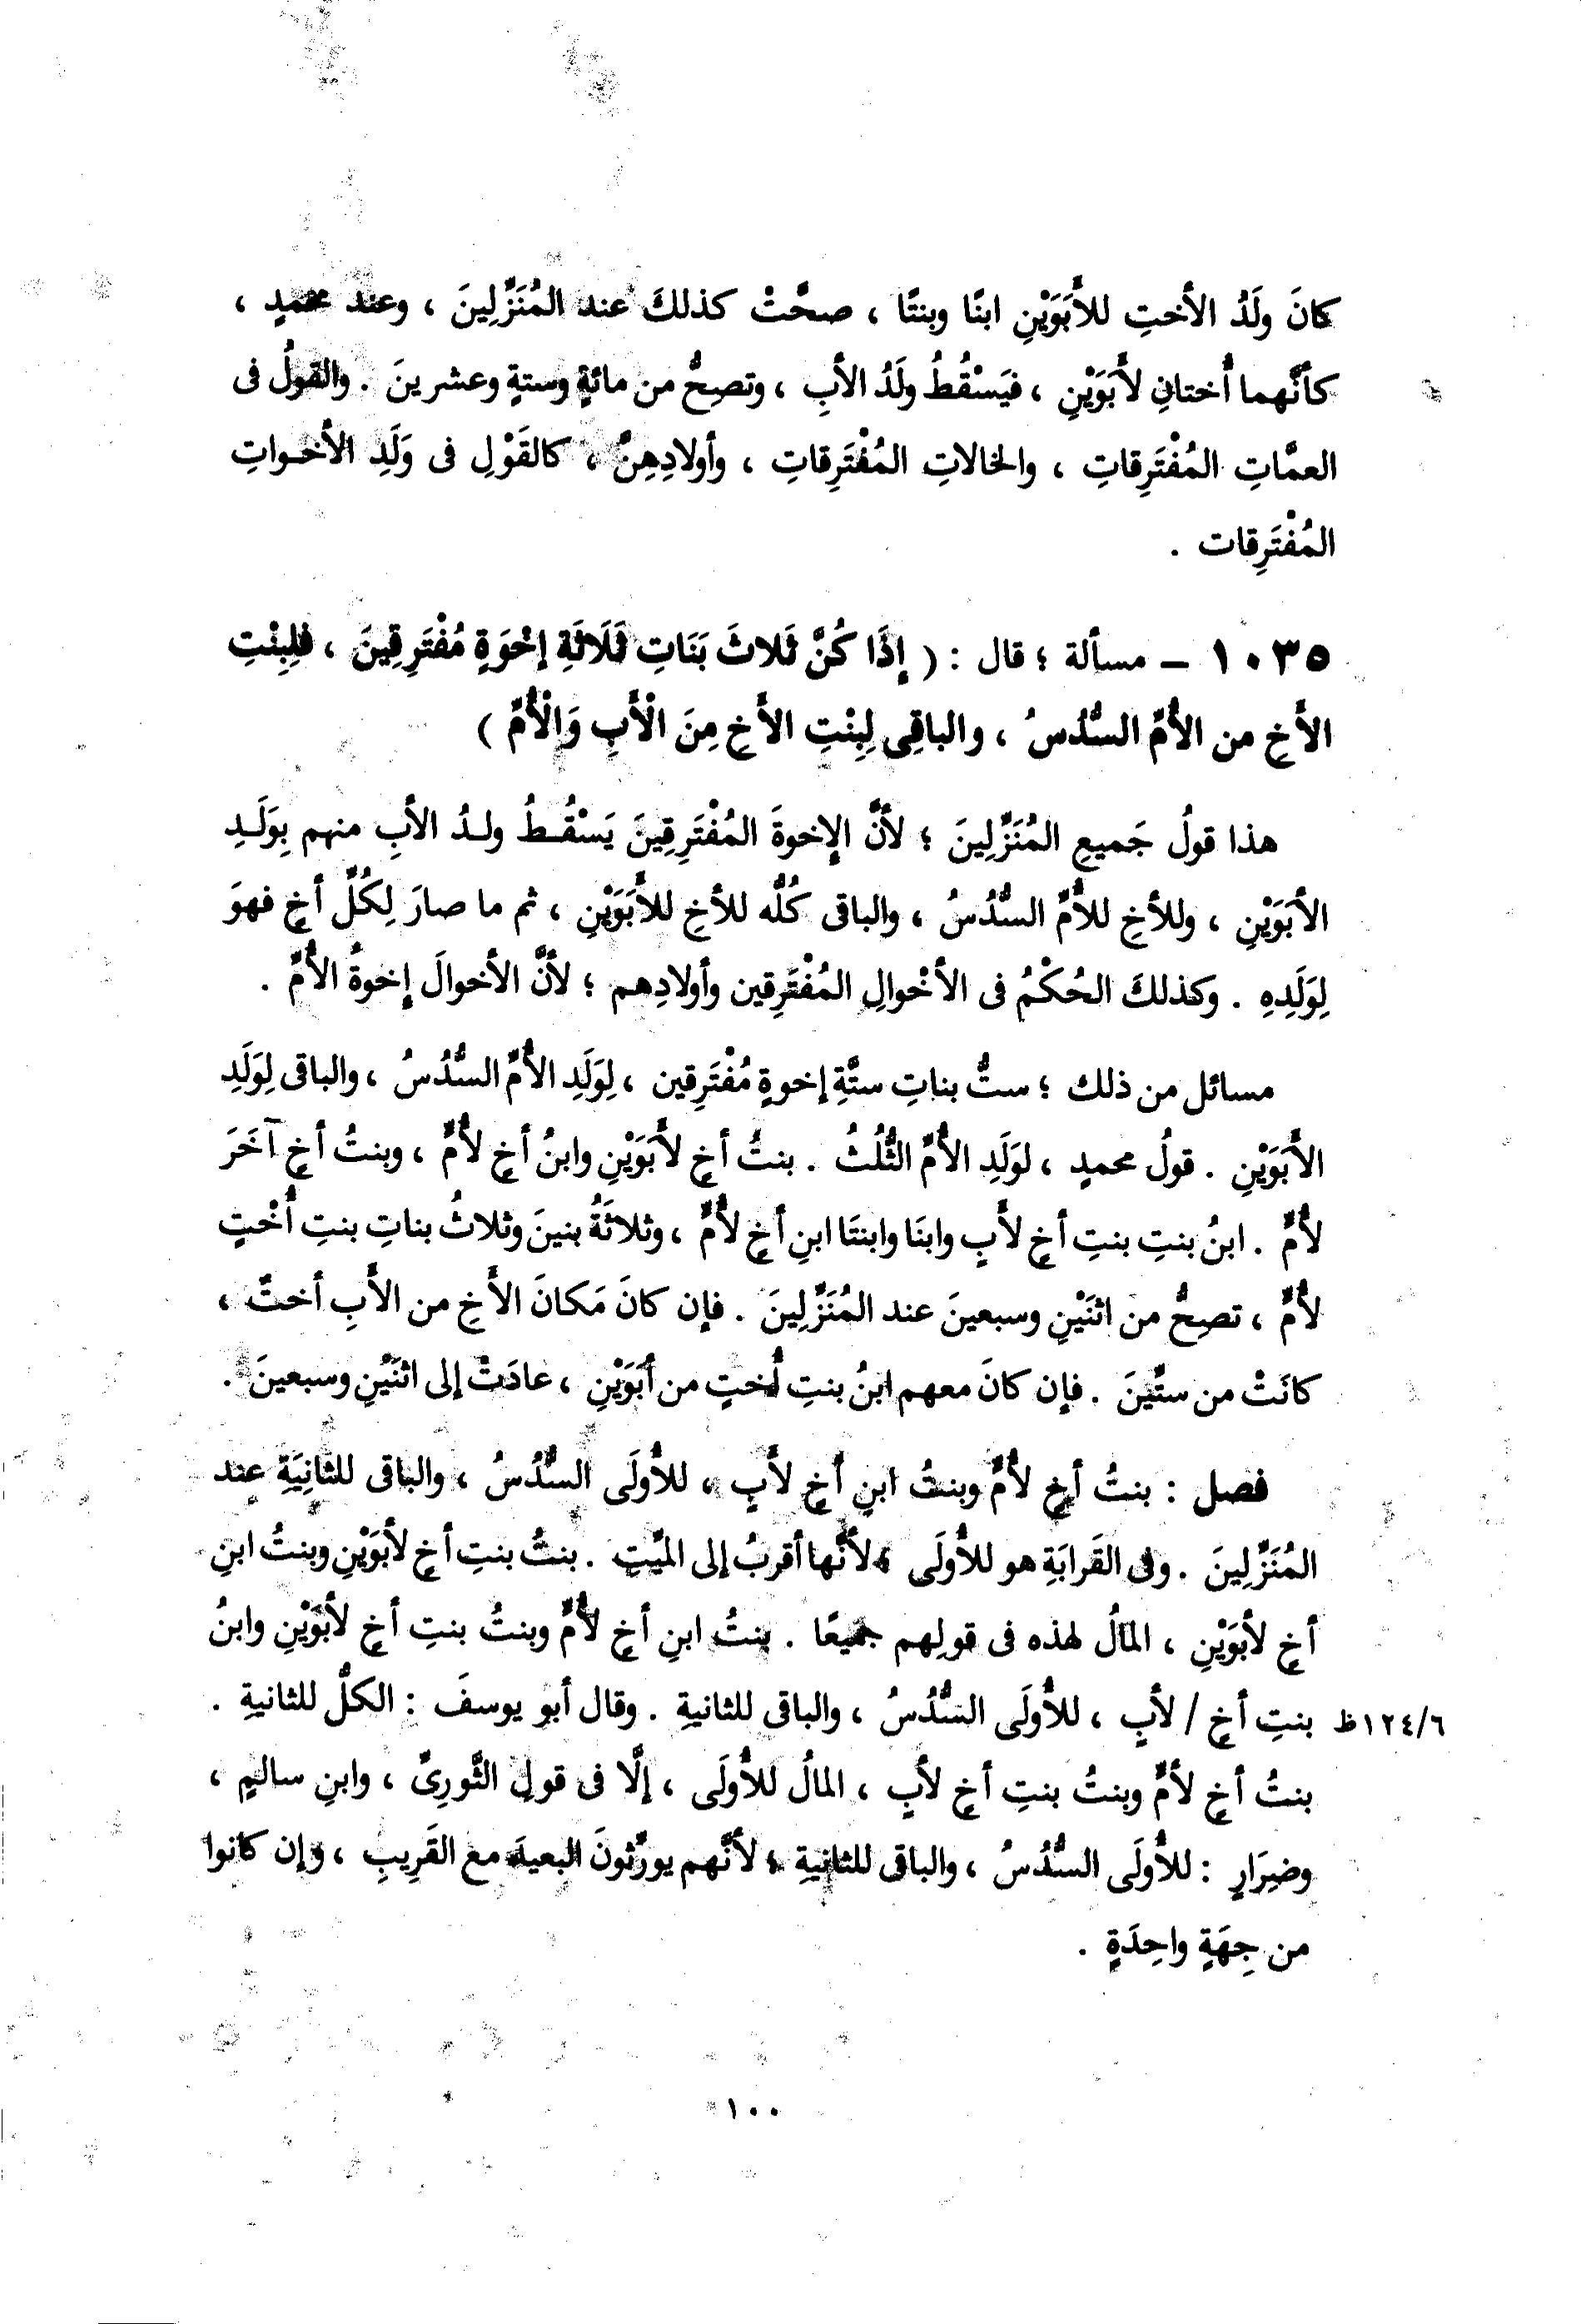 كانَ ولَدُ الأختِ للأَبَوَيْنِ ابنًا وبنتًا ، صحَّتْ كذلكَ عند المُنَزِّلِينَ ، وعند محمدٍ ،
كأنَّهما أُختانِ لأَبَوَيْنِ ، فيَسْقُطُ ولَدُ الأبِ ، وتصِحُّ من مائةٍ وستةٍ وعشرينَ . والقولُ فى
العمَّاتِ المُفْتَرِقاتِ ، والخالاتِ المُفْتَرِقاتِ ، وأولادِهِنَّ ، كالقَوْلِ فى وَلَدِ الأخواتِ
المُفْتَرِقات .
١٠٣٥ – مسألة ؛ قال : ( إِذَا كُنَّ ثَلاثَ بَنَاتِ ثَلَاثَةِ إخْوَةٍ مُفْتَرِقِينَ ، فَلِبِنْتِ
الأَخِ من الأُمِّ السُّدُسُ ، والباقِى لِبِنْتِ الأَخِ مِنَ الْأَبِ وَالْأُمِّ )
هذا قولُ جَميعِ المُنَزِّلِينَ ؛ لأنَّ الإِخوةَ المُفْتَرِقِينَ يَسْقُطُ ولدُ الأبِ منهم بِوَلَدِ
الأبَوَيْنِ ، وللأخِ للأُمِّ السُّدُسُ ، والباقى كُلُّه للأخِ للأَبَوَيْنِ ، ثم ما صارَ لِكُلِّ أخٍ فهوَ
لِوَلَدِهِ . وكذلكَ الحُكْمُ فى الأخْوالِ المُفْتَرِقين وأولادِهم ؛ لأنَّ الأخوالَ إخوةُ الأُمِّ .
مسائل من ذلك ؛ ستُّ بناتِ ستَّةِ إخوةٍ مُفْتَرِقين ، لِوَلَدِ الأُمِّ السُّدُسُ ، والباقى لِوَلَدِ
الأَبَوَيْنِ . قولُ محمدٍ ، لوَلَدِ الأُمِّ الثُّلُثُ . بنتُ أخٍ لأَبَوَيْنِ وابنُ أخٍ لأُمٍّ ، وبنتُ أخٍ آخَرَ
لأُمٍّ . ابنُ بنتِ بنتِ أخٍ لأَبٍ وابنَا وابنتَا ابنِ أخٍ لأُمٍّ ، وثلاثَةُ بنينَ وثلاثُ بناتِ بنتِ أُخْتٍ
لأُمٍّ ، تصِحُّ من اثنَيْنِ وسبعينَ عند المُنَزِّلِينَ . فإن كانَ مَكانَ الأَخِ من الأَبِ أختٌ ،
كانَتْ من ستِّينَ . فإن كانَ معهم ابنُ بنتِ أُختٍ من أبَوَيْنِ ، عادَتْ إلى اثنَيْنِ وسبعينَ .
فصل : بنتُ أخٍ لأُمٍّ وبنتُ ابنِ أخٍ لأَبٍ ، للأُولَى السُّدُسُ ، والباقى للثانِيَةِ عند
المُنَزِّلِينَ . وفى القَرابَةِ هو للأُولَى ؛ لأنَّها أقربُ إلى الميِّتِ . بنتُ بنتِ أخٍ لأبَوَيْنِ وبنتُ ابنِ
أخٍ لأبَوَيْنِ ، المالُ لهذه فى قولِهم جميعًا . بنتُ ابنِ أخٍ لأُمٍّ وبنتُ بنتِ أخٍ لأبَوَيْنِ وابنُ
بنتِ أخٍ / لأبٍ ، للأُولَى السُّدُسُ ، والباقى للثانيةِ . وقال أبو يوسفَ : الكلُّ للثانيةِ . ١٢٤/٦ظ
بنتُ أخٍ لأمٍّ وبنتُ بنتِ أخٍ لأبٍ ، المالُ للأُولَى ، إلَّا فى قولِ الثَّورِىِّ ، وابنِ سالمٍ ،
وضِرَارٍ : للأُولَى السُّدُسُ ، والباقى للثانيةِ ؛ لأنَّهم يورِّثونَ البعيدَ مع القَرِيبِ ، وإن كانوا
من جِهَةٍ واحِدَةٍ .
١٠٠